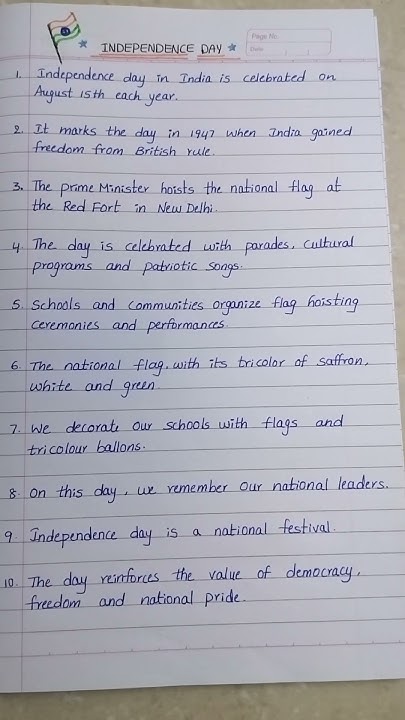 Page No.
Date
INDEPENDENCE DAY
1. Independence day in India is celebrated on
August 15th each year.
2. It marks the day in 1947 when India gained
freedom from British rule.
3. The prime Minister hoists the national flag at
the Red Fort in New Delhi.
4. The day is celebrated with parades, cultural
programs and patriotic songs.
5. Schools and communities organize flag hoisting
ceremonies and performances.
6. The national flag, with its tricolor of saffron,
white and green.
7. We decorate our schools with flags and
tricolour ballons.
8. On this day, we remember our national leaders.
9. Independence day is a national festival.
10. The day reinforces the value of democracy,
freedom and national pride.